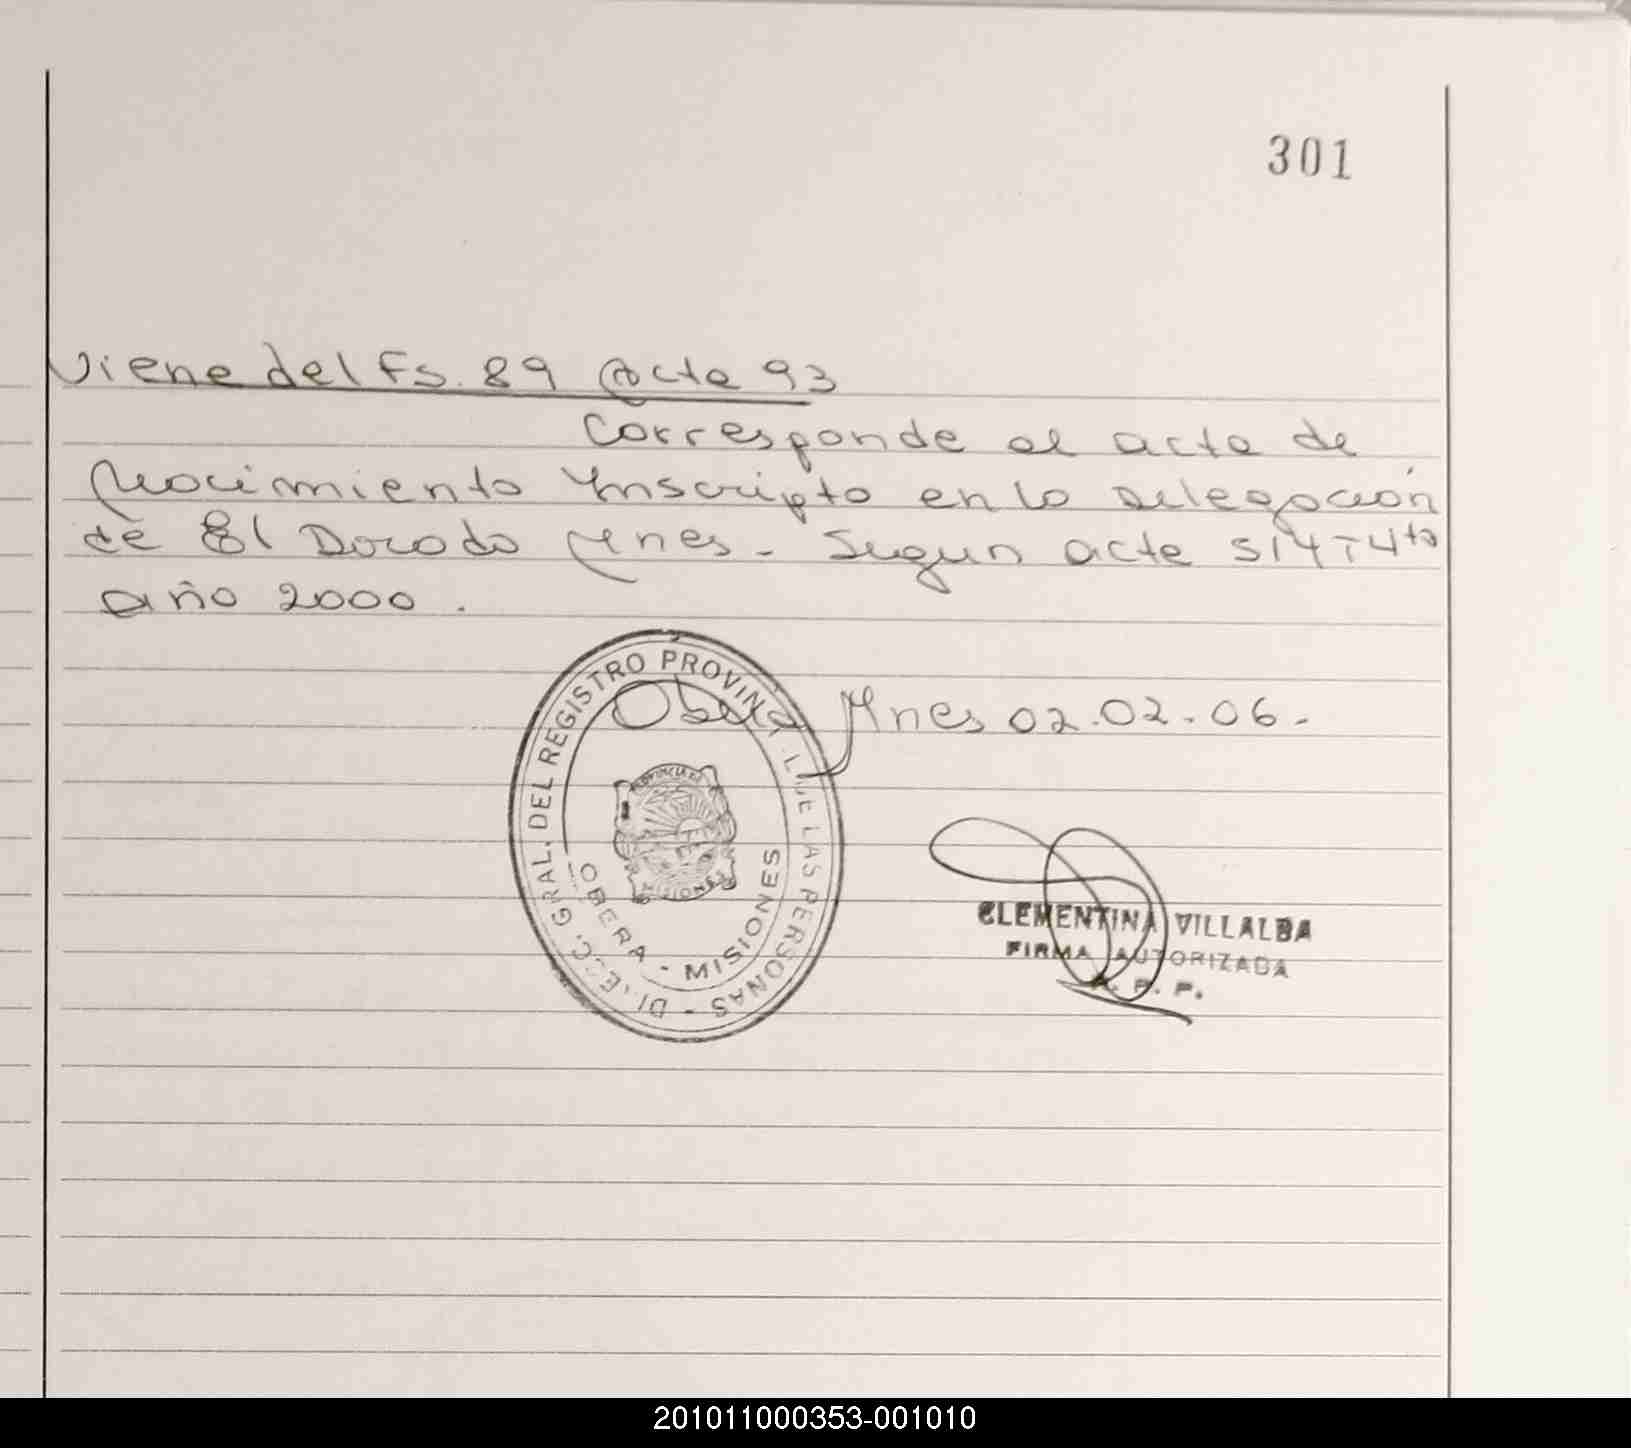 301
Viene del Fs. 89 Acta 93
Corresponde al acta de
Nacimiento Inscripto en la Delegación
de El Dorado Mnes - Segun acta 514 T 4to
año 2000.
Oberá Mnes 02.02.06.-
DIRECC. GRAL. DEL REGISTRO PROVINCIAL DE LAS PERSONAS
PROVINCIA DE
MISIONES
OBERA - MISIONES
CLEMENTINA VILLALBA
FIRMA AUTORIZADA
R. P. P.
201011000353-001010